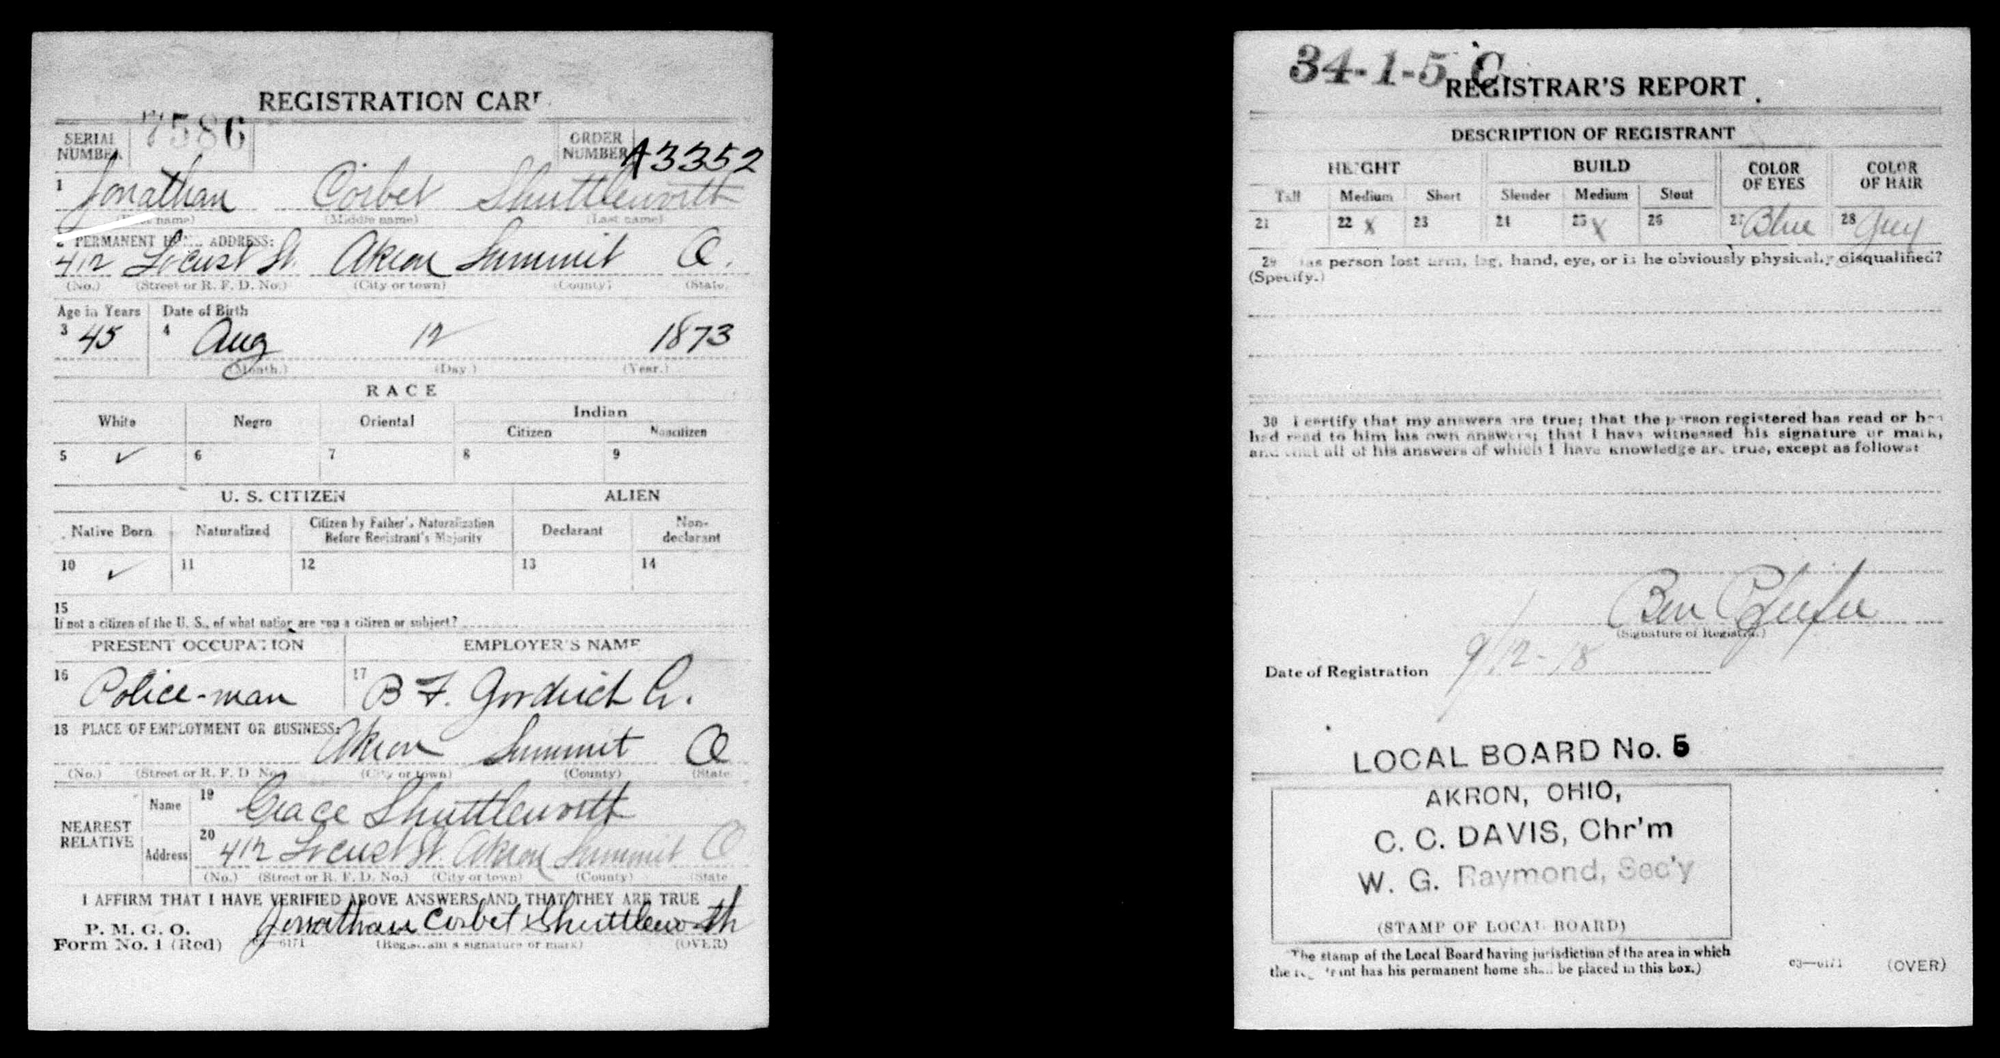 REGISTRATION CARD
SERIAL NUMBER 7586 ORDER NUMBER A3352
1 Jonathan Corbet Shuttleworth
(First name) (Middle name) (Last name)
2 PERMANENT HOME ADDRESS:
412 Locust St. Akron Summit O.
(No.) (Street or R. F. D. No.) (City or town) (County) (State)
Age in Years Date of Birth
3 45 4 Aug 12 1873
(Month.) (Day.) (Year.)
RACE
White Negro Oriental Indian
Citizen Noncitizen
5 ✓ 6 7 8 9
U. S. CITIZEN ALIEN
Native Born Naturalized Citizen by Father's Naturalization Before Registrant's Majority Declarant Non-declarant
10 ✓ 11 12 13 14
15
If not a citizen of the U. S., of what nation are you a citizen or subject?
PRESENT OCCUPATION EMPLOYER'S NAME
16 Police-man 17 B F. Goodrich Co.
18 PLACE OF EMPLOYMENT OR BUSINESS:
Akron Summit O
(No.) (Street or R. F. D. No.) (City or town) (County) (State
NEAREST RELATIVE
Name 19 Grace Shuttleworth
Address 20 412 Locust St. Akron Summit O
(No.) (Street or R. F. D. No.) (City or town) (County) (State
I AFFIRM THAT I HAVE VERIFIED ABOVE ANSWERS AND THAT THEY ARE TRUE
P. M. G. O.
Form No. 1 (Red) Jonathan Corbet Shuttleworth
(Registrant's signature or mark) (OVER)
34-1-5 C.
REGISTRAR'S REPORT
DESCRIPTION OF REGISTRANT
HEIGHT BUILD COLOR OF EYES COLOR OF HAIR
Tall Medium Short Slender Medium Stout
21 22 x 23 24 25 x 26 27 Blue 28 Grey
29 Has person lost arm, leg, hand, eye, or is he obviously physically disqualified?
(Specify.)
30 I certify that my answers are true; that the person registered has read or has
had read to him his own answers; that I have witnessed his signature or mark,
and that all of his answers of which I have knowledge are true, except as follows:
Ben
(Signature of Registrar)
Date of Registration 9/12-18
LOCAL BOARD No. 5
AKRON, OHIO,
C. C. DAVIS, Chr'm
W. G. Raymond, Sec'y
(STAMP OF LOCAL BOARD)
(The stamp of the Local Board having jurisdiction of the area in which
the registrant has his permanent home shall be placed in this box.)
03—6171 (OVER)